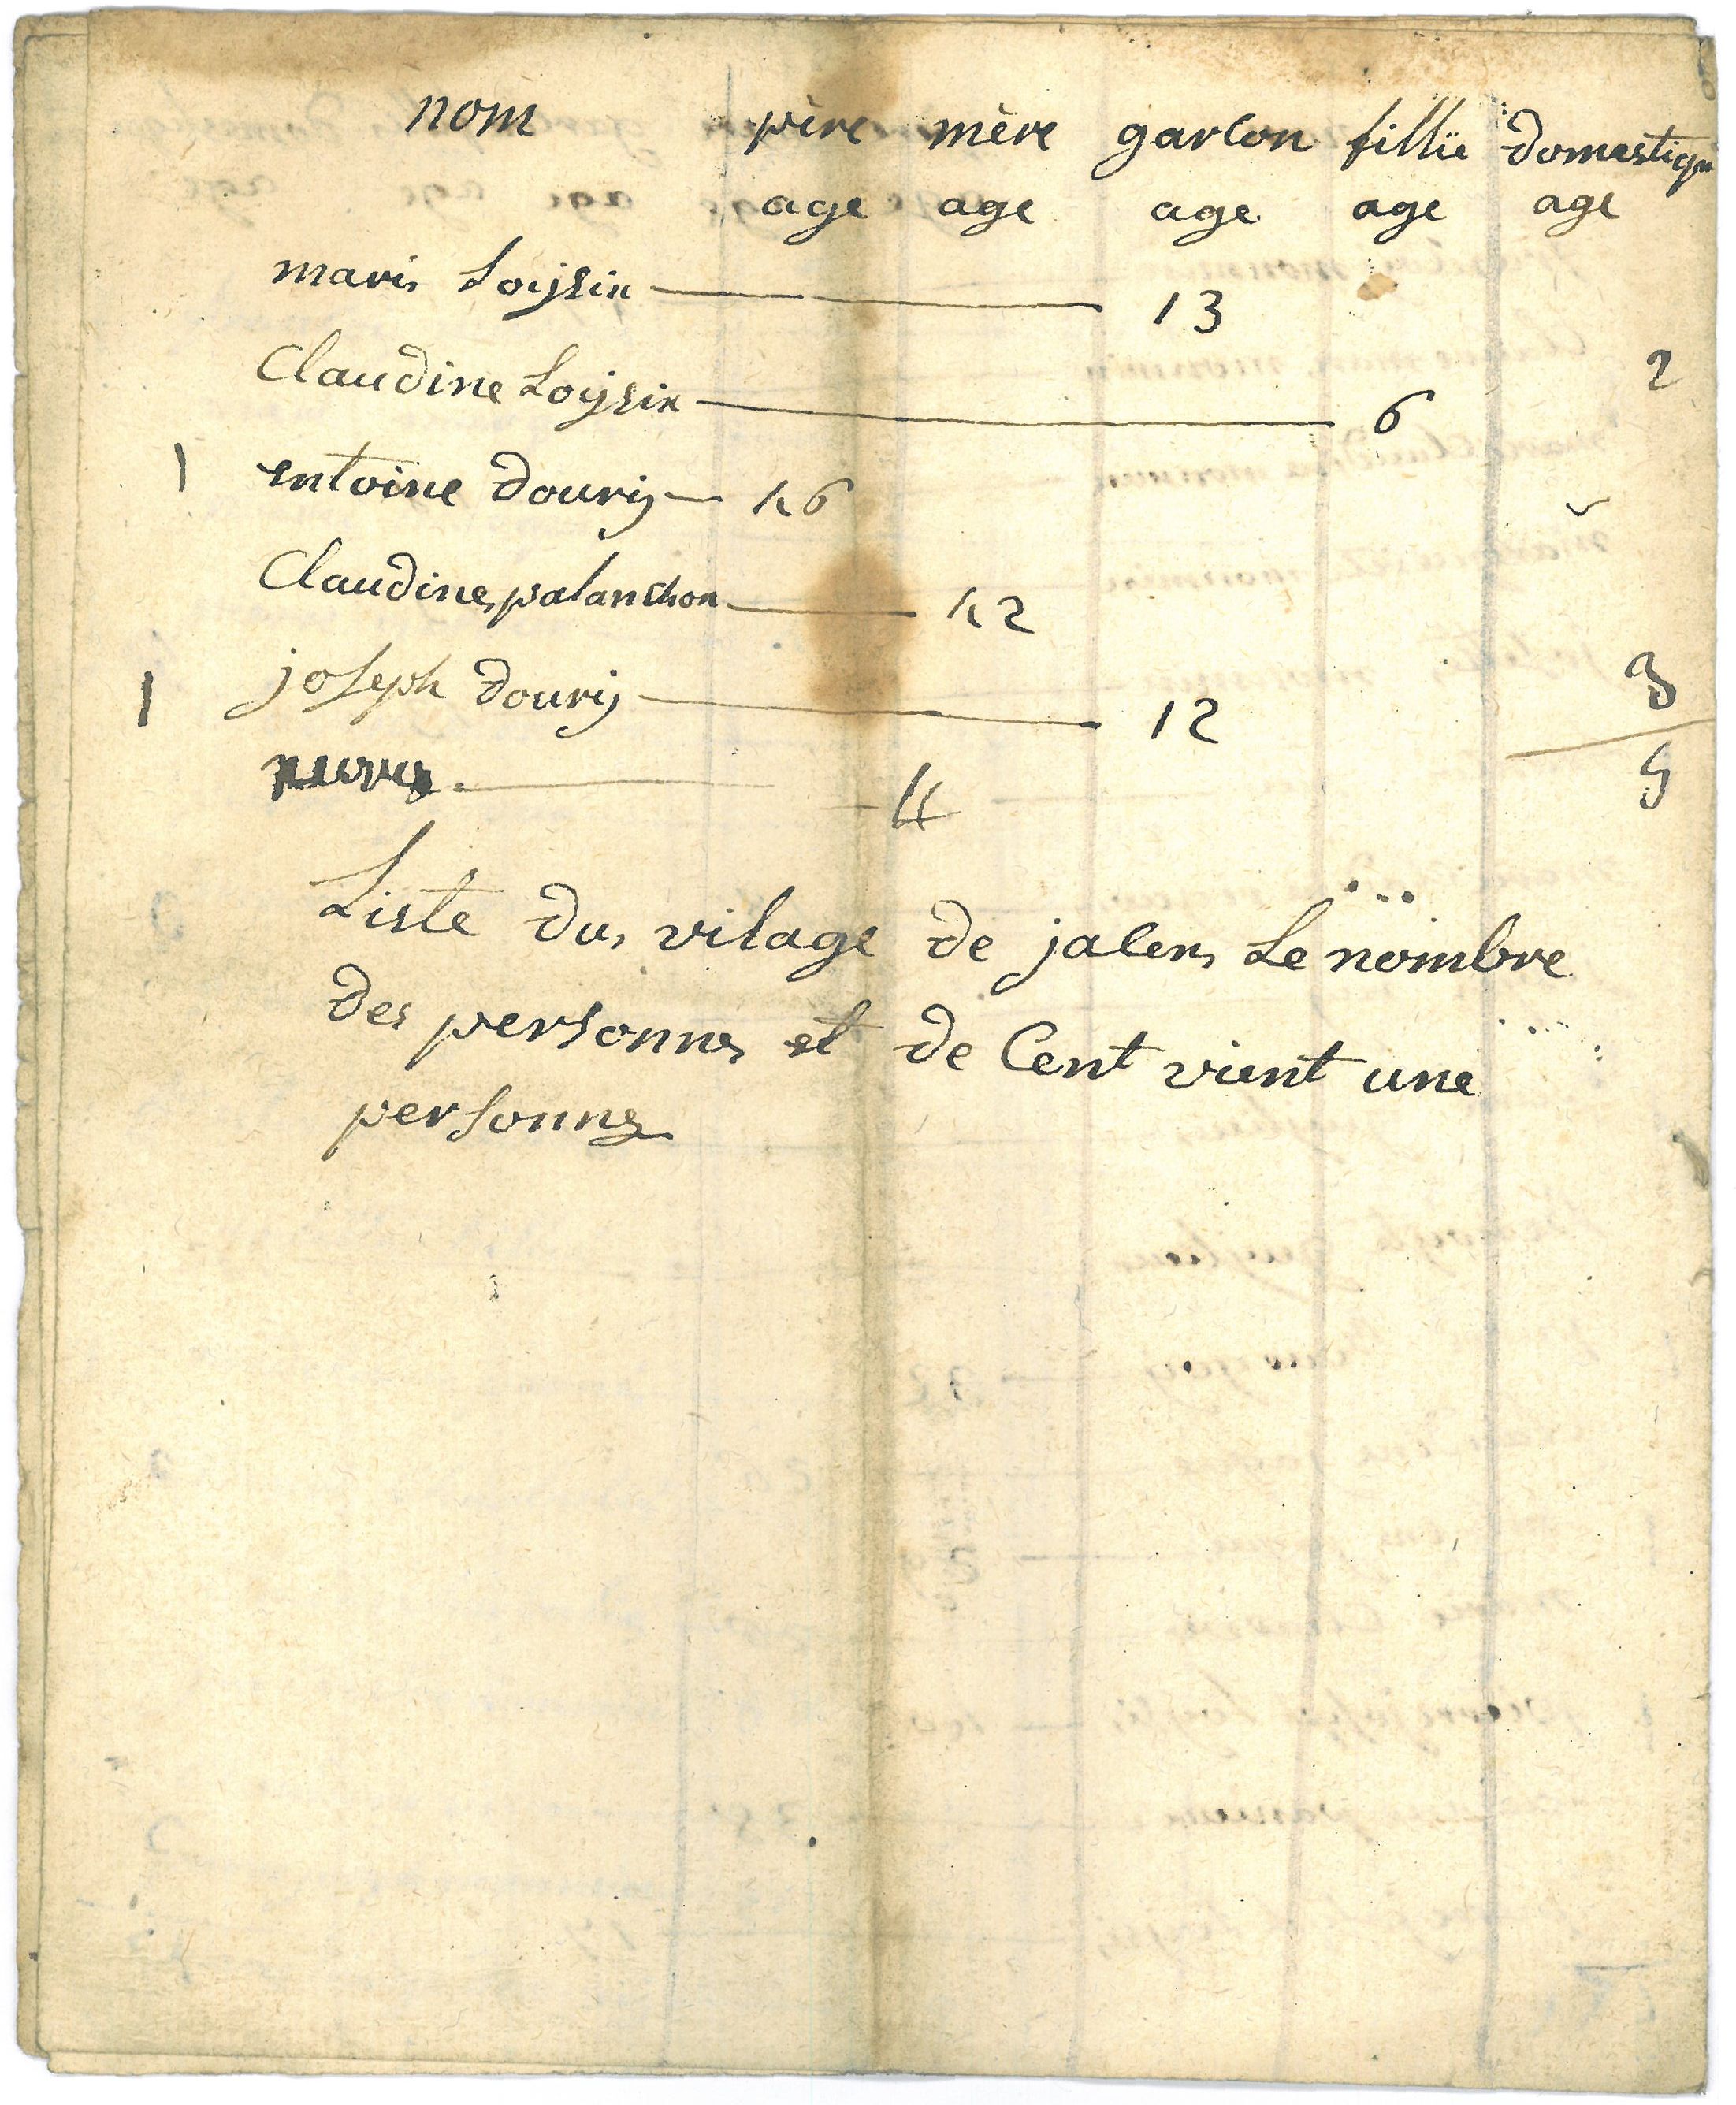 nom père mère garcon fillie domestique
age age age age age
marie Loysin 13
Claudine Loysin 6 2
1 entoine doury 46
Claudine palanchon 42
1 joseph doury 12 3
5
Liste du vilage de jaler Le nombre
des personnes et de Cent vient une
personne